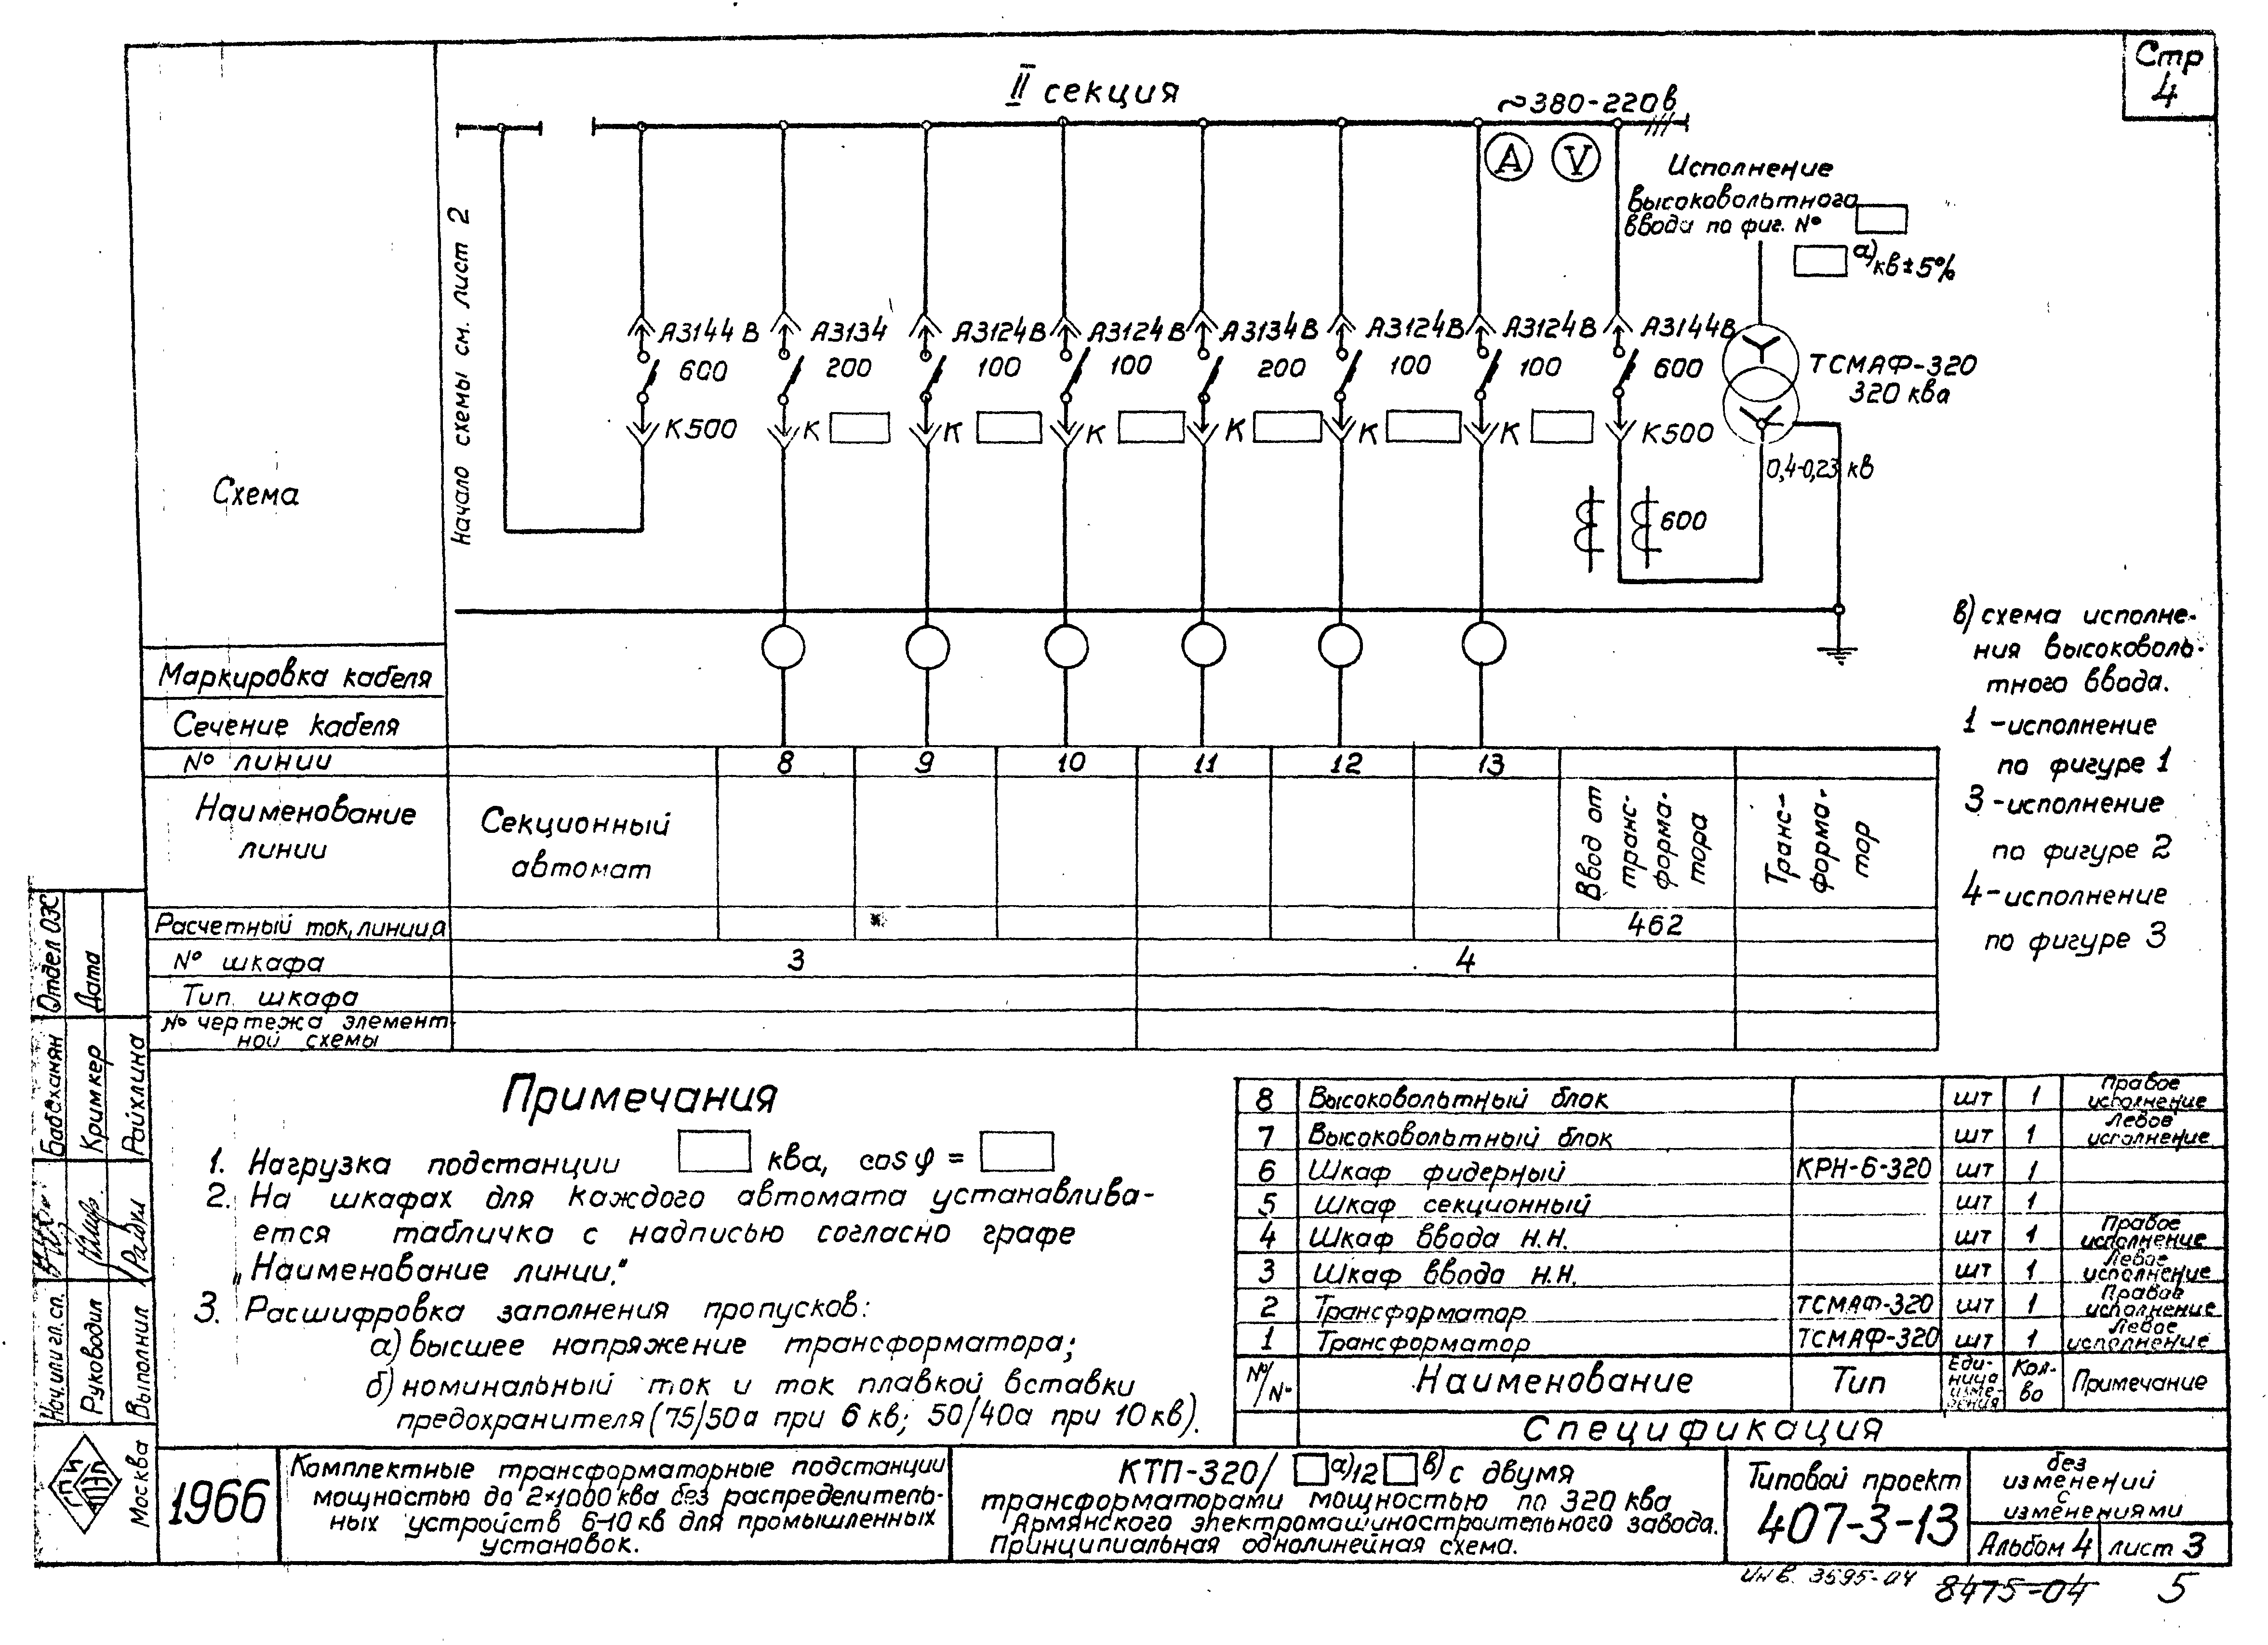 Стр
4
II секция
~380-220в
A
V
Исполнение
высоковольтного
ввода по фиг. №
а) кв ± 5%
Начало схемы см. лист 2
А3144В
600
К500
А3134
200
К
А3124В
100
К
А3124В
100
К
А3134В
200
К
А3124В
100
К
А3124В
100
К
А3144В
600
К500
600
ТСМАФ-320
320 ква
0,4-0,23 кв
Схема
Маркировка кабеля
Сечение кабеля
№ линии
8 9 10 11 12 13
Наименование
линии
Секционный
автомат
Ввод от
транс-
форма-
тора
Транс-
форма-
тор
Расчетный ток, линии, а
462
№ шкафа
3
4
Тип шкафа
№ чертежа элемент-
ной схемы
в) схема исполне-
ния высоковоль-
тного ввода.
1 - исполнение
по фигуре 1
3 - исполнение
по фигуре 2
4 - исполнение
по фигуре 3
Примечания
1. Нагрузка подстанции ква, cosφ =
2. На шкафах для каждого автомата устанавлива-
ется табличка с надписью согласно графе
„Наименование линии."
3. Расшифровка заполнения пропусков:
а) высшее напряжение трансформатора;
б) номинальный ток и ток плавкой вставки
предохранителя (75/50а при 6 кв; 50/40а при 10 кв).
8 Высоковольтный блок шт 1 Правое исполнение
7 Высоковольтный блок шт 1 Левое исполнение
6 Шкаф фидерный КРН-6-320 шт 1
5 Шкаф секционный шт 1
4 Шкаф ввода Н.Н. шт 1 Правое исполнение
3 Шкаф ввода Н.Н. шт 1 Левое исполнение
2 Трансформатор ТСМАФ-320 шт 1 Правое исполнение
1 Трансформатор ТСМАФ-320 шт 1 Левое исполнение
№/№ Наименование Тип Еди-ница изме-рения Кол-во Примечание
Спецификация
Отдел ОЭС
Дата
Бабаханян
Кримкер
Райхлина
Нач. или гл. сп.
Руководил
Выполнил
Москва
1966
Комплектные трансформаторные подстанции
мощностью до 2×1000 ква без распределитель-
ных устройств 6-10 кв для промышленных
установок.
КТП-320/ а) 12 в) с двумя
трансформаторами мощностью по 320 ква
Армянского электромашиностроительного завода.
Принципиальная однолинейная схема.
Типовой проект
407-3-13
без
изменений
с
изменениями
Альбом 4
лист 3
Инв. 3595-04
8475-04
5